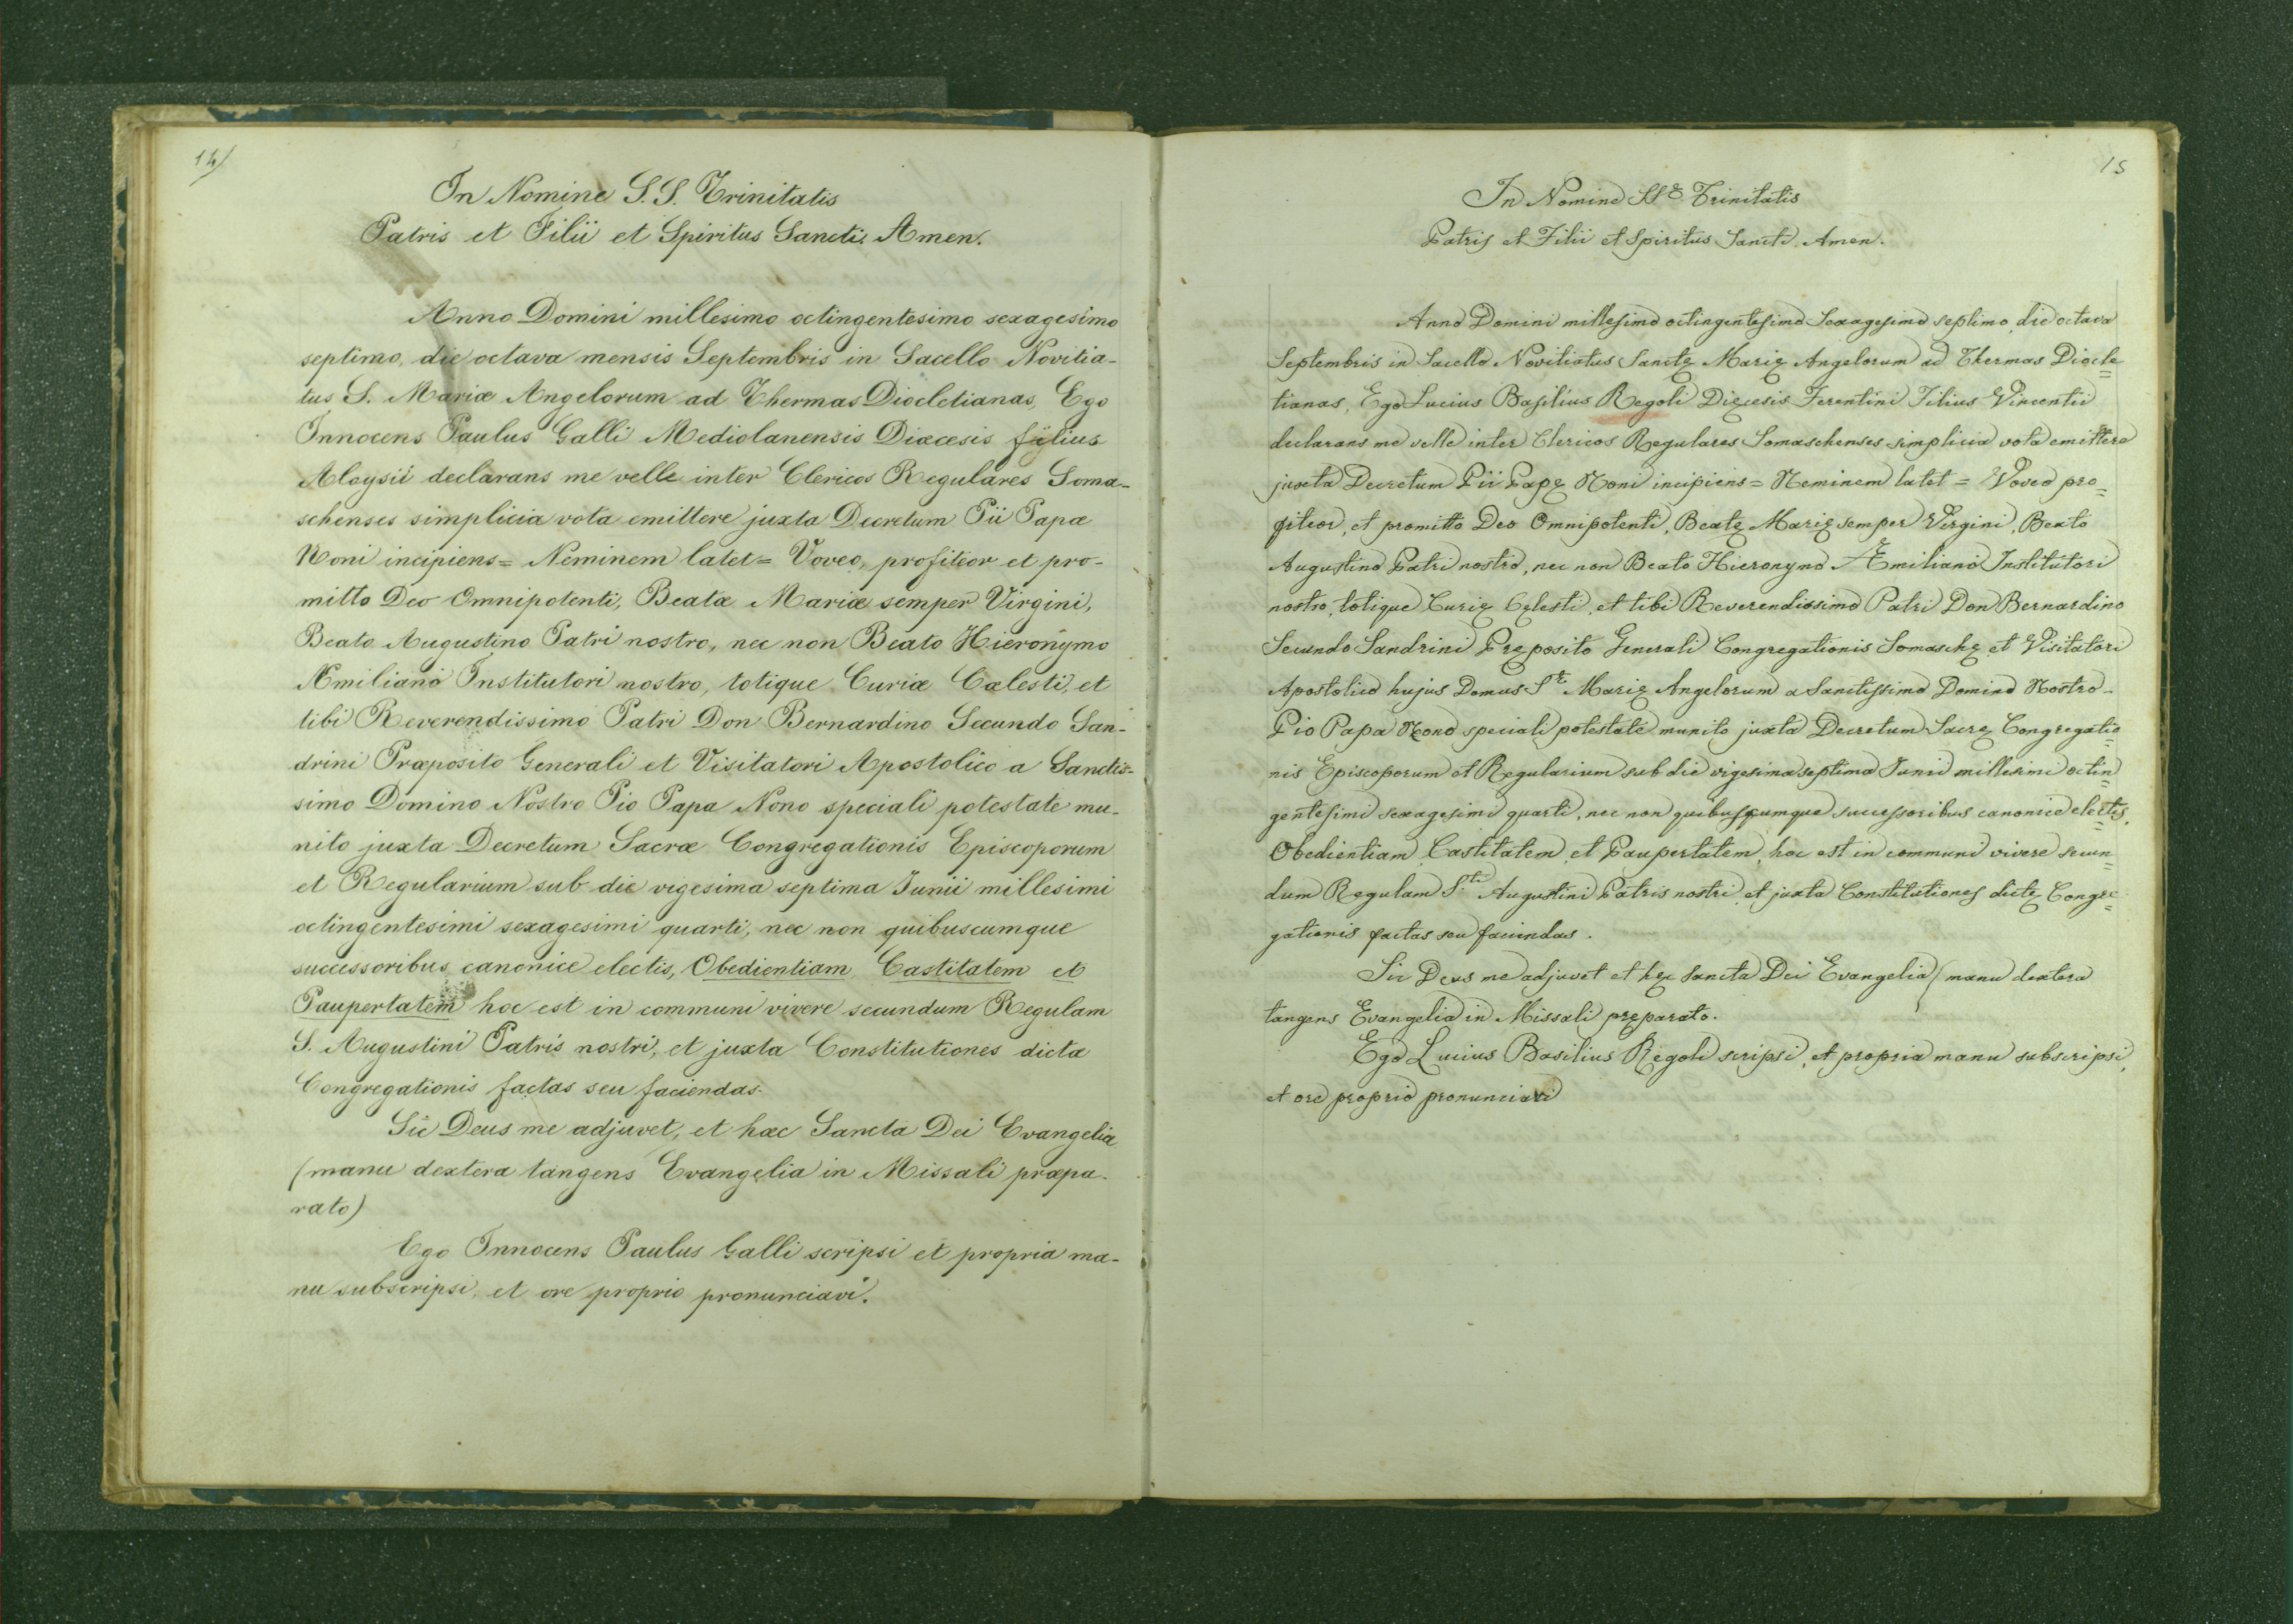 14)
In Nomine S.S. Trinitatis
Patris et Filii et Spiritus Sancti. Amen.
Anno Domini millesimo octingentesimo sexagesimo
septimo, die octava mensis Septembris in Sacello Novitia-
tus S. Mariæ Angelorum ad Thermas Diocletianas, Ego
Innocens Paulus Galli Mediolanensis Diæcesis filius
Aloysii declarans me velle inter Clericos Regulares Soma-
schenses simplicia vota emittere juxta Decretum Pii Papæ
Noni incipiens = Neminem latet = Voveo, profiteor et pro-
mitto Deo Omnipotenti, Beatæ Mariæ semper Virgini,
Beato Augustino Patri nostro, nec non Beato Hieronymo
Æmiliano Institutori nostro, totique Curiæ Cælesti, et
tibi Reverendissimo Patri Don Bernardino Secundo San-
drini Præposito Generali et Visitatori Apostolico a Sanctis-
simo Domino Nostro Pio Papa Nono speciali potestate mu-
nito juxta Decretum Sacræ Congregationis Episcoporum
et Regularium sub die vigesima septima Junii millesimi
octingentesimi sexagesimi quarti, nec non quibuscumque
successoribus canonice electis, Obedientiam, Castitatem et
Paupertatem hoc est in communi vivere secundum Regulam
S. Augustini Patris nostri, et juxta Constitutiones dictæ
Congregationis factas seu faciendas.
Sic Deus me adjuvet, et hæc Sancta Dei Evangelia
(manu dextera tangens Evangelia in Missali præpa-
rato)
Ego Innocens Paulus Galli scripsi et propria ma-
nu subscripsi, et ore proprio pronunciavi.
15
In Nomine SSę Trinitatis
Patris et Filii et Spiritus Sancti Amen.
Anno Domini millesimo octingentesimo Sexagesimo septimo, die octava
Septembris in Sacello Novitiatus Sanctę Marię Angelorum ad Thermas Diocle=
tianas, Ego Lucius Basilius Regoli Dięcesis Ferentini Filius Vincentii
declarans me velle inter Clericos Regulares Somaschenses simplicia vota emittere
juxta Decretum Pii Papę Noni incipiens = Neminem latet = Voveo pro=
fiteor, et promitto Deo Omnipotenti, Beatę Marię semper Virgini, Beato
Augustino Patri nostro, nec non Beato Hieronymo Æmiliano Institutori
nostro, totique Curię Cęlesti, et tibi Reverendissimo Patri Don Bernardino
Secundo Sandrini Pręposito Generali Congregationis Somaschę et Visitatori
Apostolico hujus Domus Sę Marię Angelorum a Sanctissimo Domino Nostro
Pio Papa Nono speciali potestate munito juxta Decretum Sacrę Congregatio=
nis Episcoporum et Regularium sub die vigesima septima Junii millesimi octin=
gentesimi sexagesimi quarti, nec non quibuscumque successoribus canonice electis,
Obedientiam, Castitatem, et Paupertatem, hoc est in communi vivere secun=
dum Regulam S.ti Augustini Patris nostri, et juxta Constitutiones dictę Congre=
gationis factas seu faciendas.
Sic Deus me adjuvet et hęc Sancta Dei Evangelia (manu dextera
tangens Evangelia in Missali pręparato.
Ego Lucius Basilius Regoli scripsi, et propria manu subscripsi,
et ore proprio pronunciavi